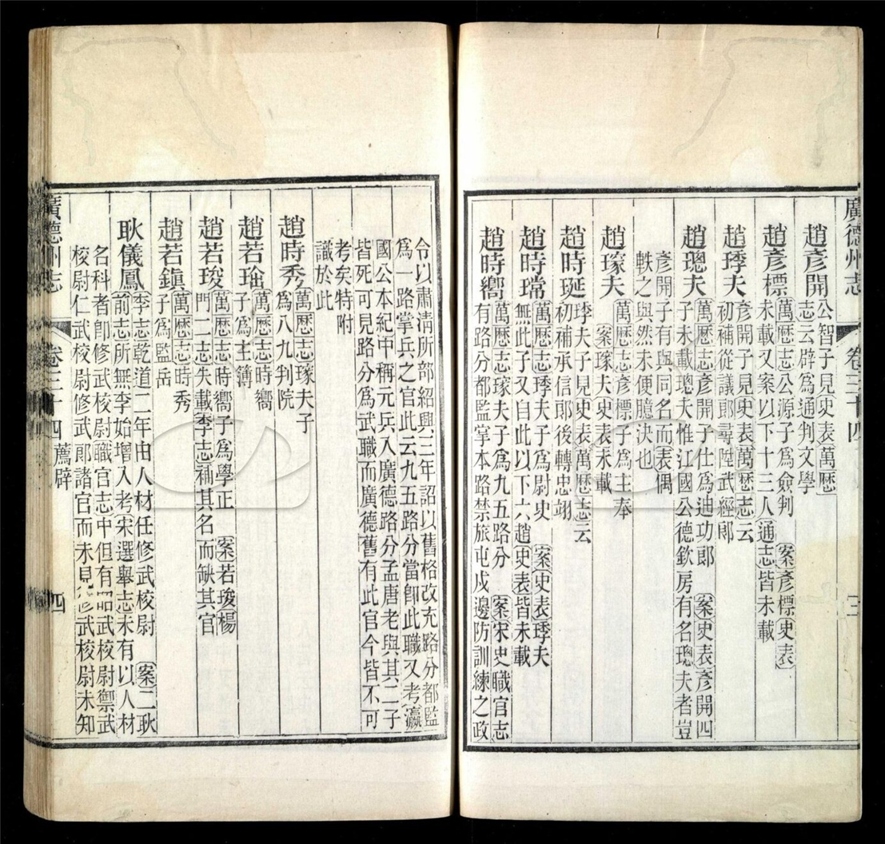 廣德州志 卷三十四 三
趙彥開 公智子見史表萬曆
志云辟爲通判文學
趙彥標 萬曆志公源子爲僉判 案彥標史表
未載又案以下十三人通志皆未載
趙夫 彥開子見史表萬曆志云
初補從議郎尋陞武經郎
趙璁夫 萬曆志彥開子仕爲迪功郎 案史表彥開四
子未載璁夫惟江國公德欽房有名璁夫者豈
彥開子有與同名而表偶
軼之與然未便臆決也
趙瑑夫 萬曆志彥標子爲主奉
案瑑夫史表未載
趙時珽 夫子見史表萬曆志云
初補承信郎後轉忠翊
趙時瑺 萬曆志夫子爲尉史 案史表夫
無此子又自此以下六趙史表皆未載
趙時嚮 萬曆志瑑夫子爲九五路分 案宋史職官志
有路分都監掌本路禁旅屯戍邊防訓練之政
令以肅清所部紹興三年詔以舊格改充路分都監
爲一路掌兵之官此云九五路分當卽此職又考瀛
國公本紀中稱元兵入廣德路分孟唐老與其二子
皆死可見路分爲武職而廣德舊有此官今皆不可
考矣特附
識於此
趙時秀 萬曆志瑑夫子
爲八九判院
趙若 萬曆志時嚮
子爲主簿
趙若 萬曆志時嚮子爲學正 案若楊
門二志失載李志補其名而缺其官
趙若鎭 萬曆志時秀
子爲監岳
耿儀鳳 李志乾道二年由人材任修武校尉 案二耿
前志所無李始增入考宋選舉志未有以人材
名科者卽修武校尉職官志中但有昭武校尉禦武
校尉仁武校尉修武郎諸官而未見修武校尉未知
廣德州志 卷三十四 薦辟 四